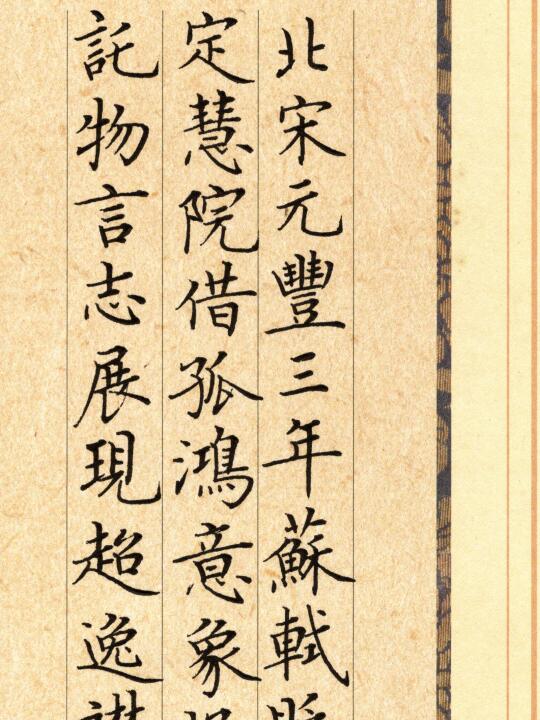 北宋元豐三年蘇軾
定慧院借孤鴻意象
託物言志展現超逸